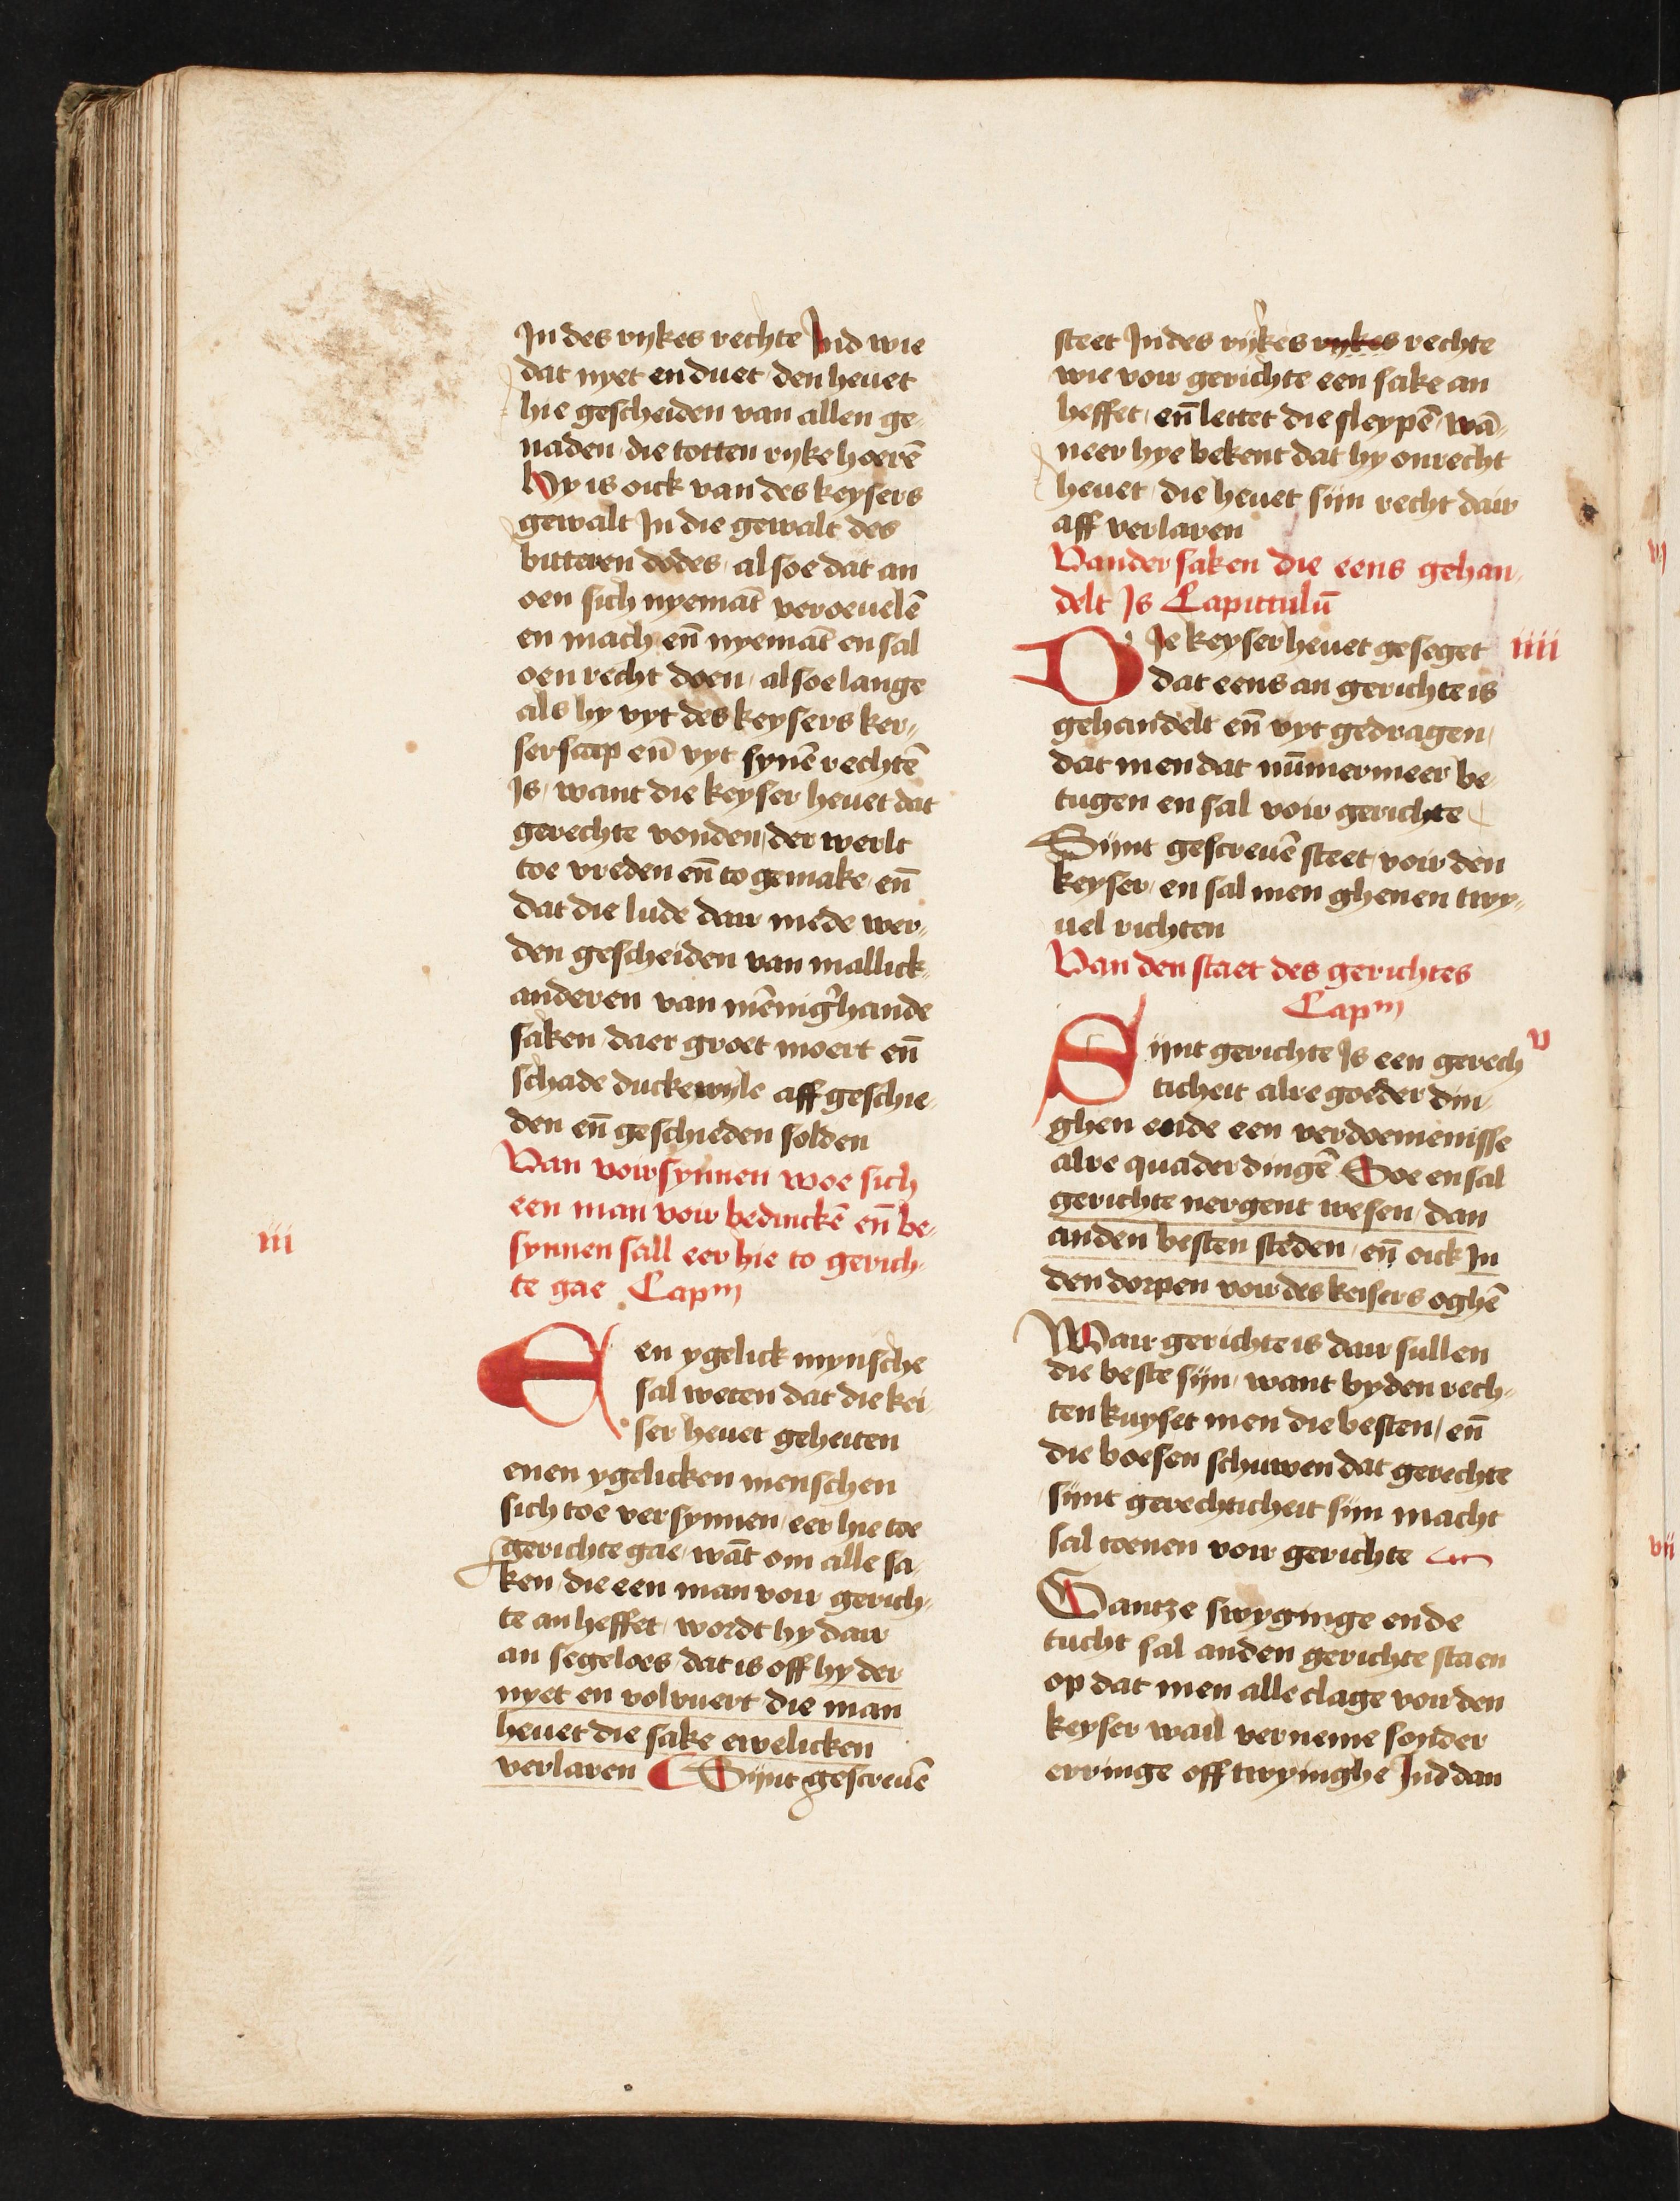 In des rykes rechte Ind wie
dat nyet en duet den heuet
hie gescheiden van allen ge-
naden die totten ryke hoerē
Hy is oick van des keysers
gewalt In die gewalt des
bitteren dodes also e dat an
oen sich nyemāt veroeuelē
en mach eñ nyemāt en sal
oen recht doen alsoe lange
als hy vyt des keysers ker-
serscap eñ vyt synē rechtē
Is want die keyser heuet dat
gerechte vonden der werlt
toe vreden eñ to gemake eñ
dat die lude dair mede wer-
den gescheiden van mallick
anderen van mēnig'hande
saken daer groet moert eñ
schade duckewyle aff geschie-
den eñ geschieden solden
Van voirsynnen woe sich
een man voir bedinckē eñ be-
synnen sall eer hie to gerich-
te gae Capm
iii
Een ygelick mynsche
sal weten dat die kei-
ser heuet geheiten
enen ygelicken menschen
sich toe versynnen eer hie toe
gerichte gae wāt om alle sa-
ken die een man voir gerich-
te an heffet wordt hy dair
an segeloes dat is off hy der
nyet en volvuert die man
heuet die sake ewelicken
verlaren Sijnt gescreuē
steet In des rijkes rykes rechte
wie voir gerichte een sake an
heffet eñ lettet die sleypē wā-
neer hye bekent dat hy onrecht
heuet die heuet sijn recht dair
aff verlaren
Van der saken die eens gehan-
delt Is Capittulū
DIe keyser heuet geseget
iiii
dat eens an gerichte is
gehandelt eñ vyt gedragen
dat men dat nūmermeer be-
tugen en sal voir gerichte
Sijnt gescreuē steet voir den
keyser en sal men ghenen twy-
uel richten
Van den staet des gerichtes
Capm
v
Sijnt gerichte Is een gerech
ticheit alre goeder din-
ghen ende een verdoemenisse
alre quader dingē Soe en sal
gerichte nergent wesen dan
anden besten steden eñ oick In
den dorpen voir des keisers oghē
Wair gerichte is dair sullen
die beste sijn want by den rech-
ten kuyset men die besten eñ
die boesen schuwen dat gerechte
sijnt gerechticheit sijn macht
sal toenen voir gerichte
Gantze swyginge ende
tucht sal anden gerichte staen
op dat men alle clage voir den
keyser wail verneme sonder
erringe off twyinghe Ind dan
vj
vii